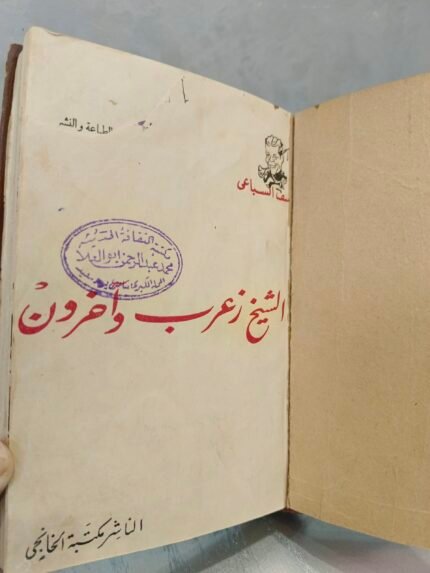 للطباعة والنشر
يوسف السباعى
مكتبة الثقافة الحديثة
محمد عبد الرحمن ابو العلا
الشيخ زعرب وآخرون
الناشر مكتبة الخانجى